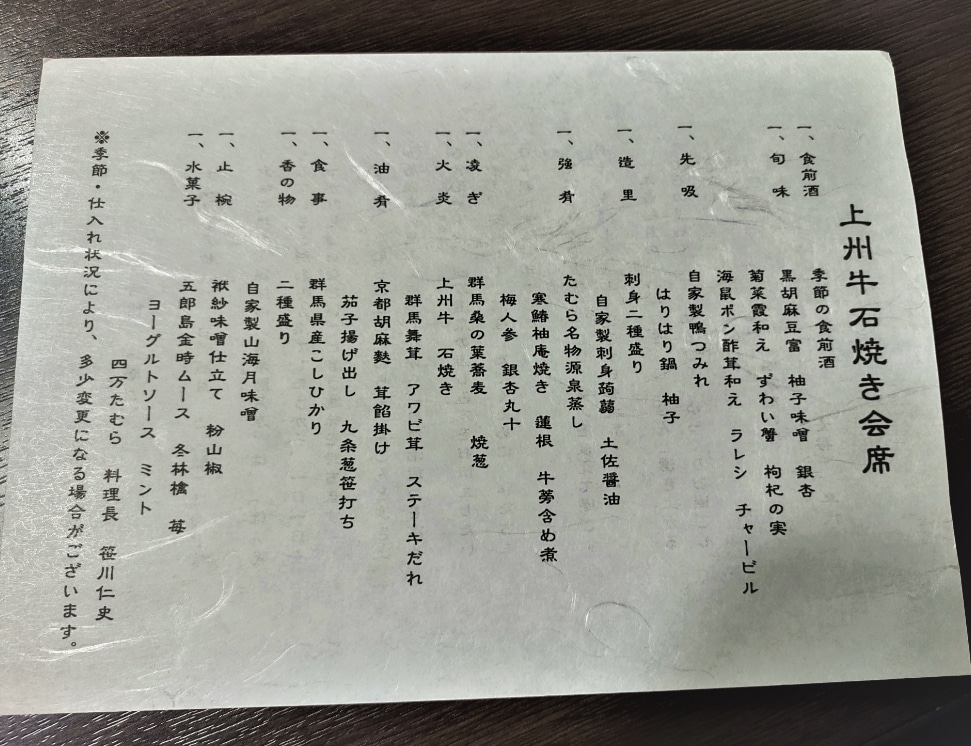 上州牛石焼き会席
一、食前酒　季節の食前酒
一、旬　味　黒胡麻豆富　柚子味噌　銀杏
菊菜霞和え　ずわい蟹　枸杞の実
海鼠ポン酢茸和え　ラレシ　チャービル
一、先　吸　自家製鴨つみれ
はりはり鍋　柚子
一、造　里　刺身二種盛り
自家製刺身蒟蒻　土佐醤油
一、強　肴　たむら名物源泉蒸し
寒鰆柚庵焼き　蓮根　牛蒡含め煮
梅人参　銀杏丸十
一、凌　ぎ　群馬桑の葉蕎麦　焼葱
一、火　炎　上州牛　石焼き
群馬舞茸　アワビ茸　ステーキだれ
一、油　肴　京都胡麻麩　茸餡掛け
茄子揚げ出し　九条葱笹打ち
一、食　事　群馬県産こしひかり
一、香の物　二種盛り
自家製山海月味噌
一、止　椀　袱紗味噌仕立て　粉山椒
一、水菓子　五郎島金時ムース　冬林檎　苺
ヨーグルトソース　ミント
四万たむら　料理長　笹川仁史
※季節・仕入れ状況により、多少変更になる場合がございます。